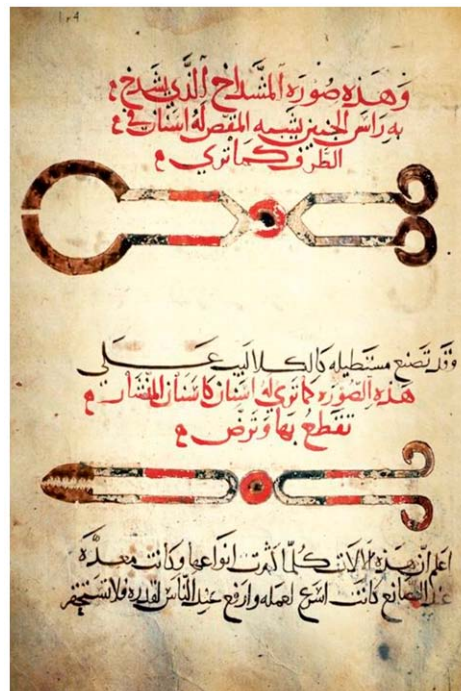 ١٠٤
وهذه صورة المشداخ الذي يشدخ
به راس الجنين يشبه المقص له اسنان في
الطرف كما تري
وقد تصنع مستطيله كالكلاليب علي
هذه الصوره كما تري له اسنان كاسنان المنشار
تقطع بها وترض
اعلم ان هذه الالات كلما كثرت انواعها وكانت معدة
عند الصانع كانت اسرع لعمله وارفع عند الناس لقدره فلا تستحقر